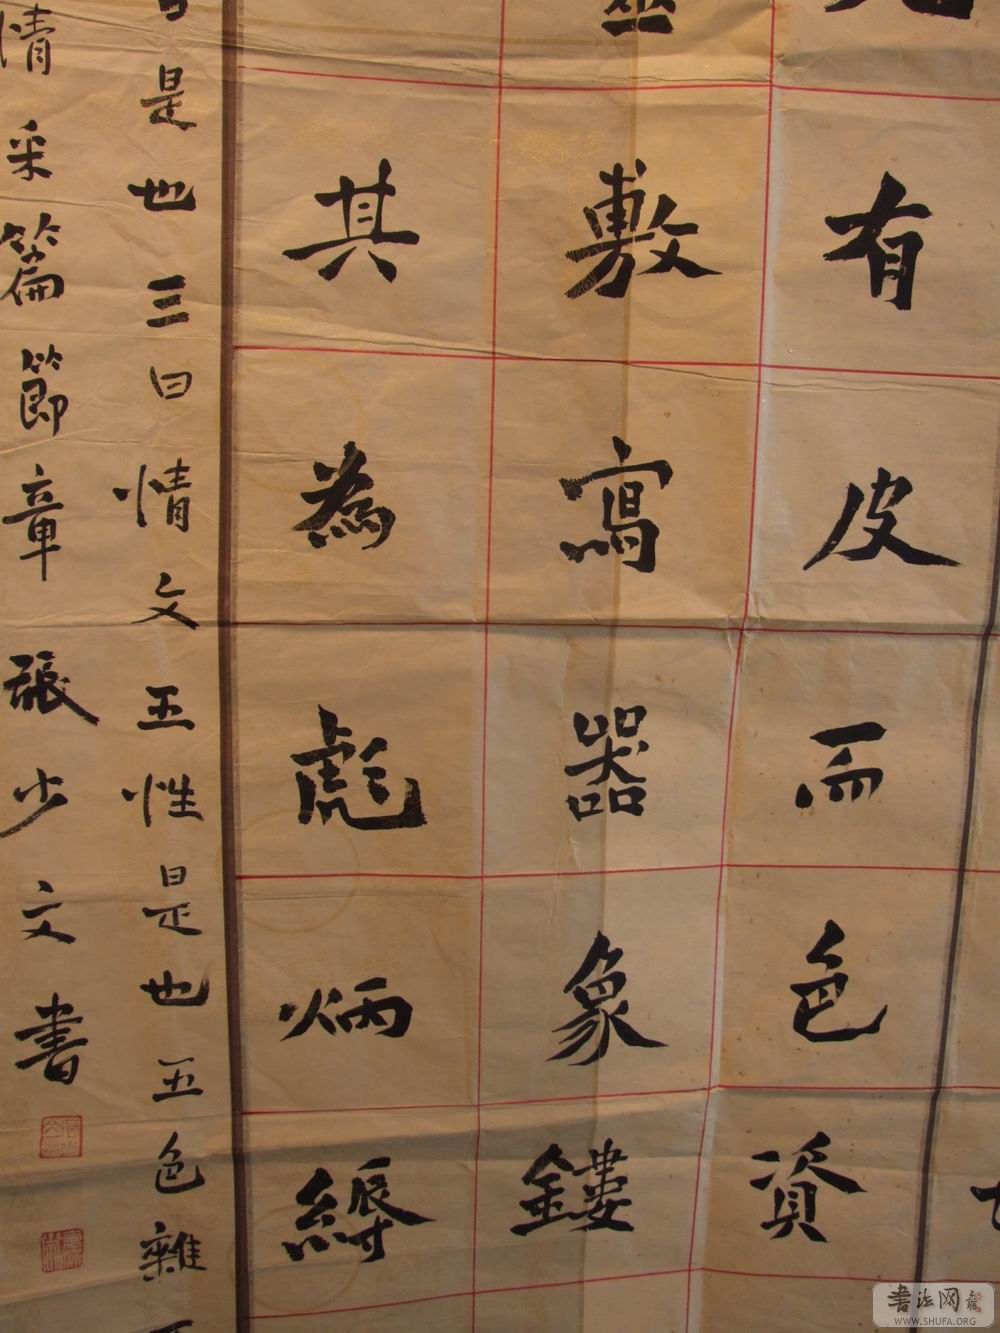 有皮而色資
敷寫器象鏤
其為彪炳縟
是也三曰情文五性是也五色雜
情采篇節章張少文書
書法网
WWW.SHUFA.ORG